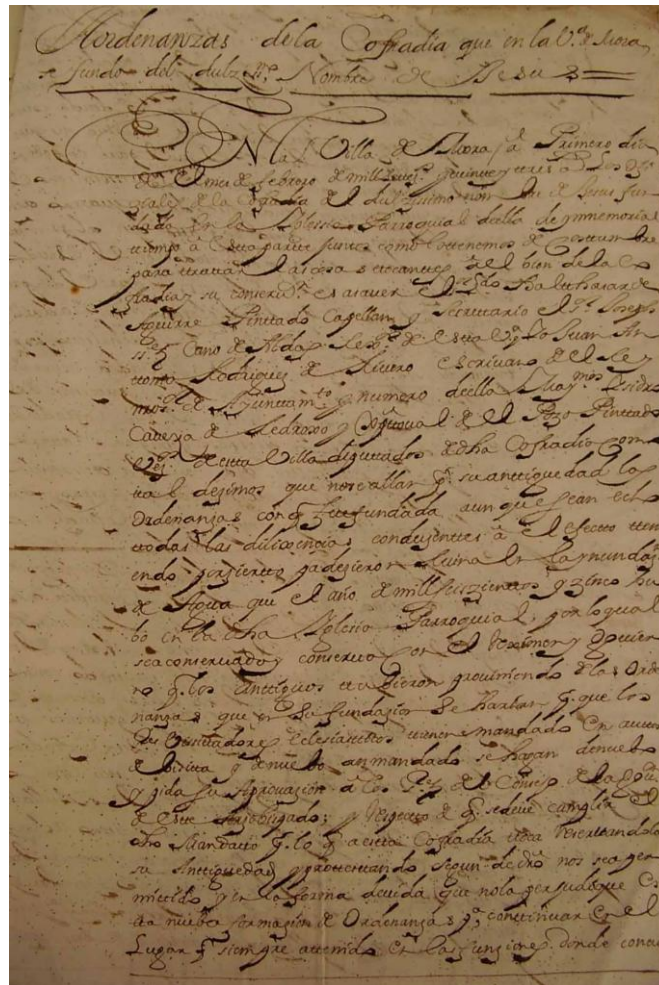 Hordenanzas de la Cofradia que en la V.ª de Mora
se fundo del dulz.mo Nombre de Jesus
En la Villa de Mora a Primero dia
del mes de febrero de mill y tres a.s los
de la Cofradia del dulzissimo nombre de Jesus fun
dada En la Yglesia Parroquial della de ynmemorial
tiempo a Esta parte juntos como lo tenemos de costumbre
para tratar las cosas tocantes al bien de la Co
fradia y su conserv.n es asaver el Balthasar de
Aguirre Pintado Capellan y Secretario el Joseph
Cano de Alda Juan An
tonio Rodriguez de Rivero escrivano del Rey
nro s.r de Ayuntam.to y numero della Isidro
Caveza de Ledrosso y Christoval de el Pozo Pinttado
de esta Villa diputados de dha Cofradia como
tal dezimos que no se allan p.r su antiguedad las
Ordenanzas con q fue fundada aunque se an echo
todas las diligencias condusentes a el efecto tten
endo por sierto padezieron Ruina en la mundaz.n
de Agua que el año de mill seiszientos y zinco hu
bo en la dha Yglesia Parroquial, por lo qual
se a conservado y conserva por el
q los Antiguos tubieron de las Orde
nanzas que en su fundazion se harian y que los
Visitadores Eclesiasticos tienen mandado En autos
de Visita y de nuebo an mandado se hagan de nuebo
y pida su Aprovazion a los S.res del Consejo de la
de este Arzobispado; y Respecto de q se deve cumplir el
dho Mandato q lo q a esta Cofradia toca
su Antiguedad y protestando segun de dro nos sea per
mitido y en la forma devida que no la perjudique Es
ta nueba formazion de Ordenanzas p.ª continuar En el
Lugar q siempre a tenido En las funziones donde concu